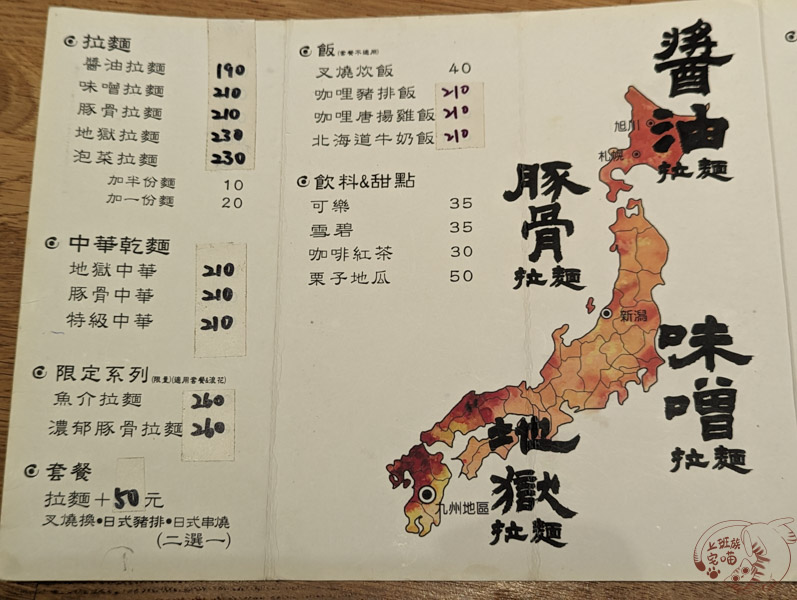 拉麵
醬油拉麵 190
味噌拉麵 210
豚骨拉麵 210
地獄拉麵 230
泡菜拉麵 230
加半份麵 10
加一份麵 20
中華乾麵
地獄中華 210
豚骨中華 210
特級中華 210
限定系列(限量)(適用套餐&浪花)
魚介拉麵 260
濃郁豚骨拉麵 260
套餐
拉麵+50元
叉燒換•日式豬排•日式串燒
(二選一)
飯(套餐不適用)
叉燒炊飯 40
咖哩豬排飯 210
咖哩唐揚雞飯 210
北海道牛奶飯 210
飲料&甜點
可樂 35
雪碧 35
咖啡紅茶 30
栗子地瓜 50
醬油
拉麵
旭川
札幌
豚骨
拉麵
新潟
味噌
拉麵
地獄
拉麵
九州地區
上班族
宅喵